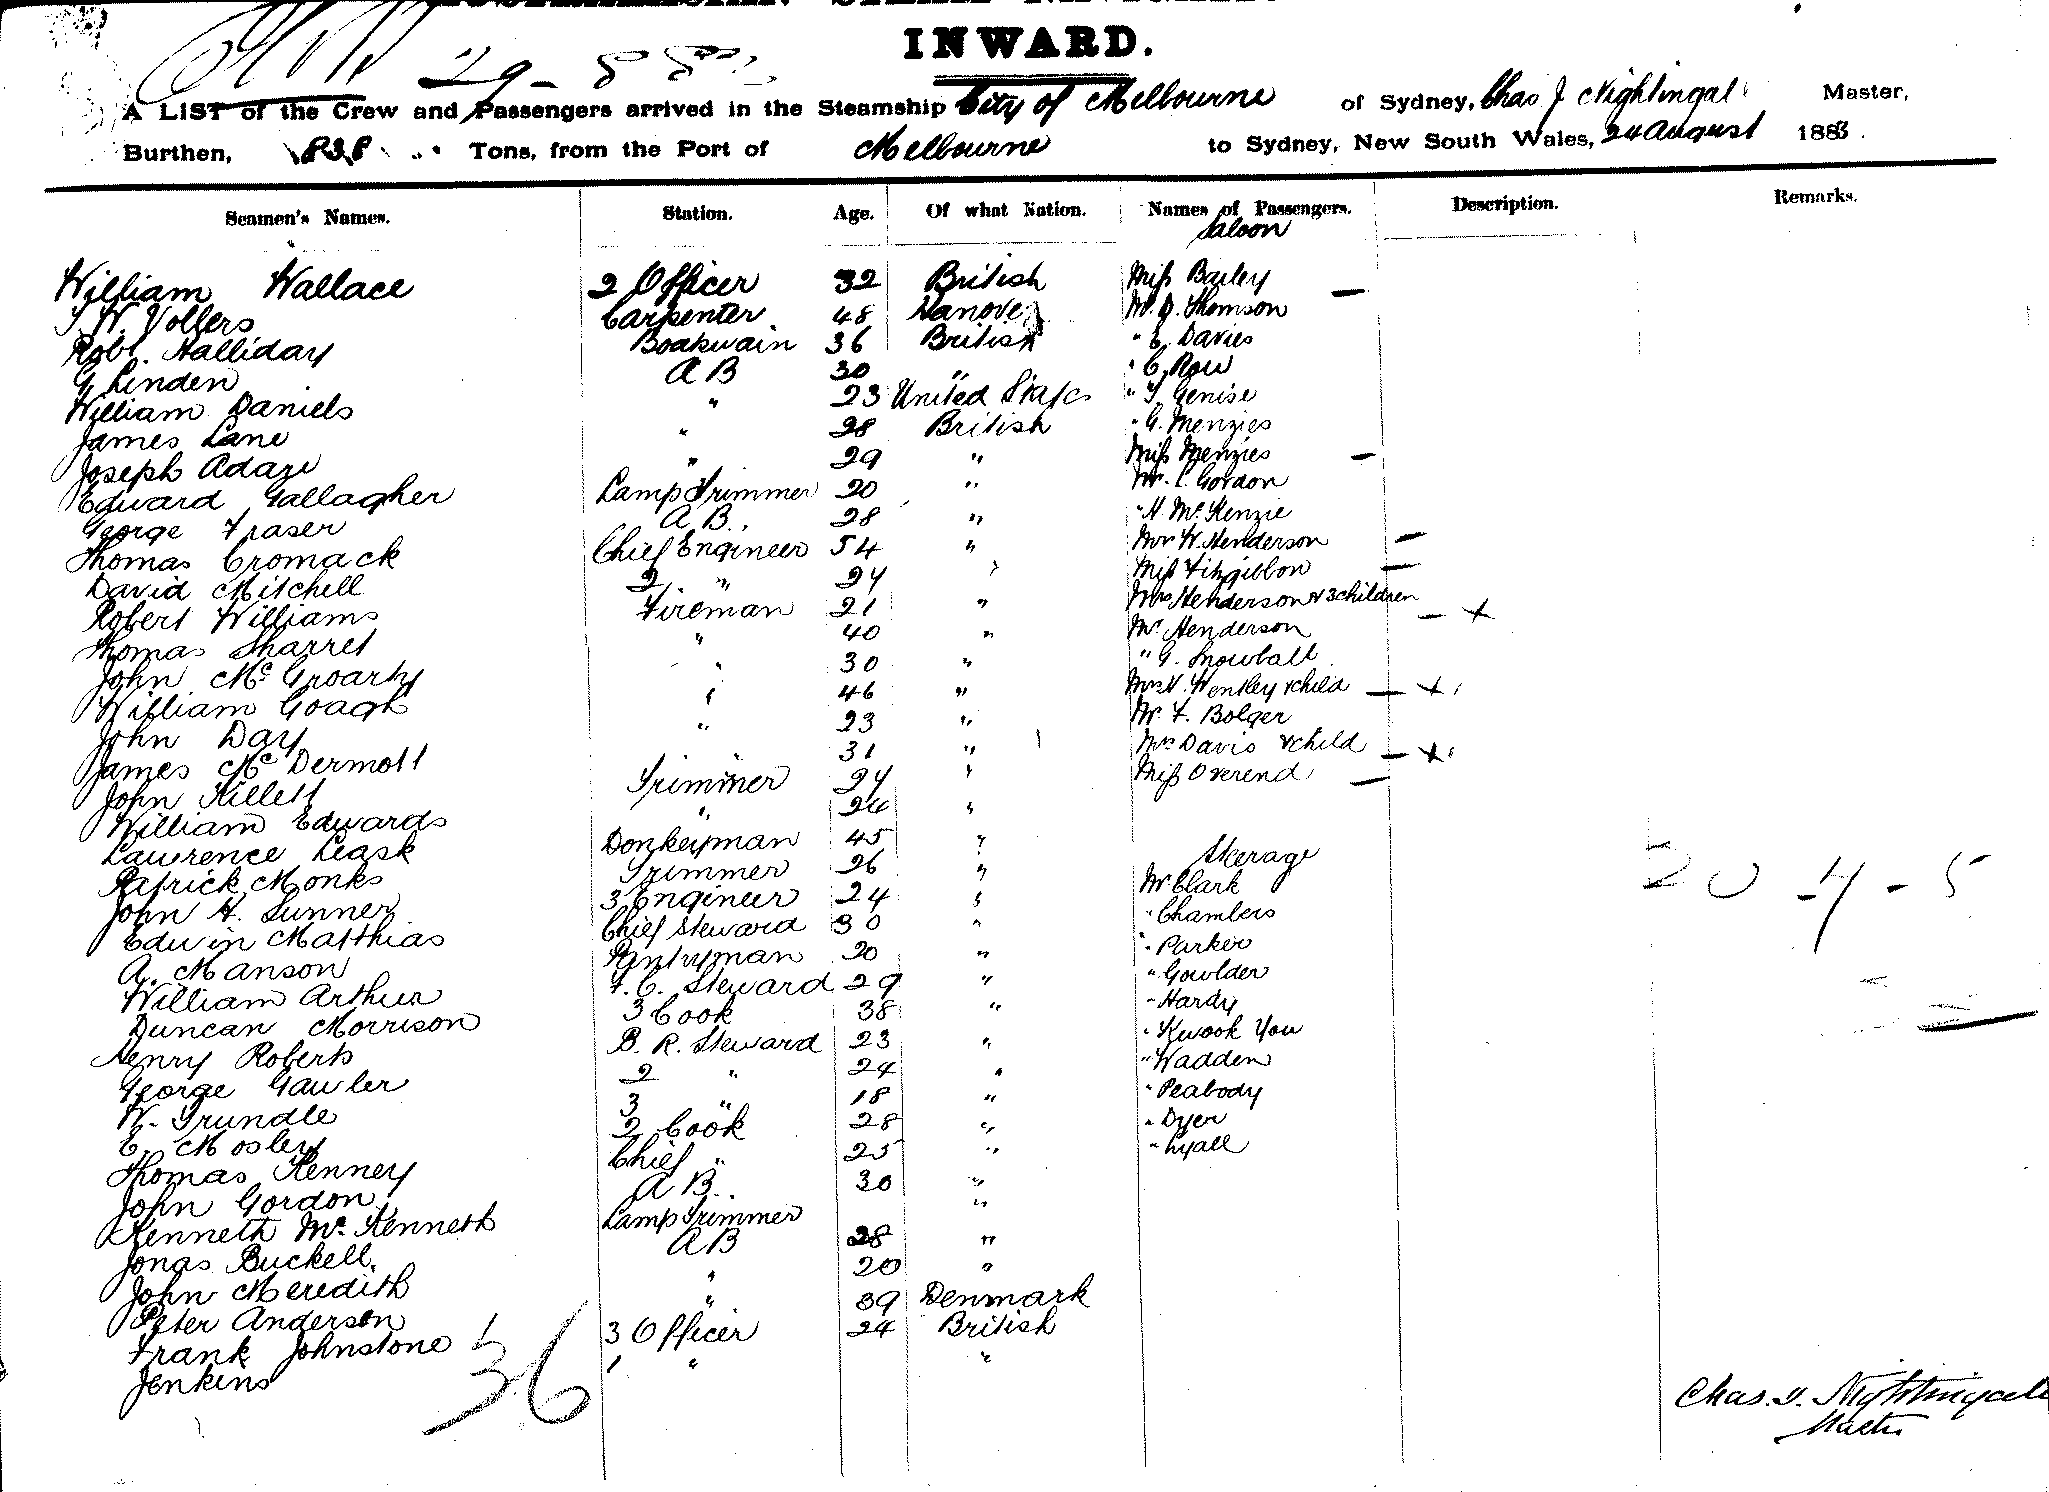 INWARD.
29-8-83
A LIST of the Crew and Passengers arrived in the Steamship City of Melbourne of Sydney, Chas J Nightingal Master,
Burthen, 838 Tons, from the Port of Melbourne to Sydney, New South Wales, 24 August 1883.
Seamen's Names. Station. Age. Of what Nation. Names of Passengers. Description. Remarks.
Saloon
William Wallace 2 Officer 32 British Miss Bailey —
Vollers Carpenter 48 Hanover Mr. Thomson
Robt. Halliday Boatswain 36 British " E. Davies
G Linden A B 30 " " C. Row
William Daniels " 23 United States " Genise
James Lane " 28 British " G. Menzies
Joseph " 29 " Miss Menzies —
Edward Gallagher Lamp Trimmer 20 " Mr. Gordon
George Fraser A B. 28 " " McKenzie
Thomas Cromack Chief Engineer 54 " W. Henderson —
David Mitchell 2 " 24 " Miss Fitzgibbon —
Robert Williams Fireman 21 " Mrs Henderson & 3 children — +
Thomas Sharret " 40 " Mr Henderson
John McGroarty " 30 " " G. Snowball
William Goagh " 46 " Wenkley & child — +
John Day " 23 " Mr. F. Bolger
James McDermott " 31 " Mrs Davis & child — +
John Killett Trimmer 24 " Miss Overend —
William Edwards " 24 "
Lawrence Leask Donkeyman 45 " Steerage
Patrick Monks Trimmer 26 " Mr Clark
John H. Sunner 3 Engineer 24 " " Chambers
Edwin Matthias Chief Steward 30 " " Parker
A. Manson Pantryman 20 " " Gowlder
William Arthur F. C. Steward 29 " " Hardy
Duncan Morrison 3 Cook 38 " " Kwook You
Henry Roberts B. R. Steward 23 " " Wadden
George Gawler 2 " 24 " " Peabody
W. Trundle 3 " 18 " " Dyer
E. Mosley 2 Cook 28 " " Lyall
Thomas Kenney Chief " 25 "
John Gordon A B. 30 "
Kenneth McKenneth Lamp Trimmer "
Jonas Buckell A B 28 "
John Meredith " 20 "
Peter Anderson " 39 Denmark
Frank Johnstone 3 Officer 24 British
Jenkins 1 " "
36
20-4-5
Chas. J. Nightingale
Master